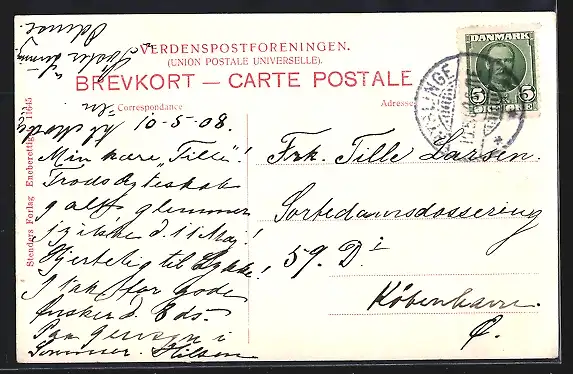 VERDENSPOSTFORENINGEN.
(UNION POSTALE UNIVERSELLE).
BREVKORT — CARTE POSTALE
Correspondance
Adresse
DANMARK
5 ØRE 5
RYSLINGE
Stenders Forlag Eneberettiget 11645
10-5-08.
Min kære „Tille"!
Trods Ægteskab
og alt, glemmer
jeg ikke d. 11 Maj!
Hjertelig til Lykke!
og Tak for gode
Ønsker d. 8ds.
Paa Gensyn i
Sommer. Hilsen
Odense.
Frk. Tille Larsen.
Sortedamsdossering
59. D. i
København.
Ø.